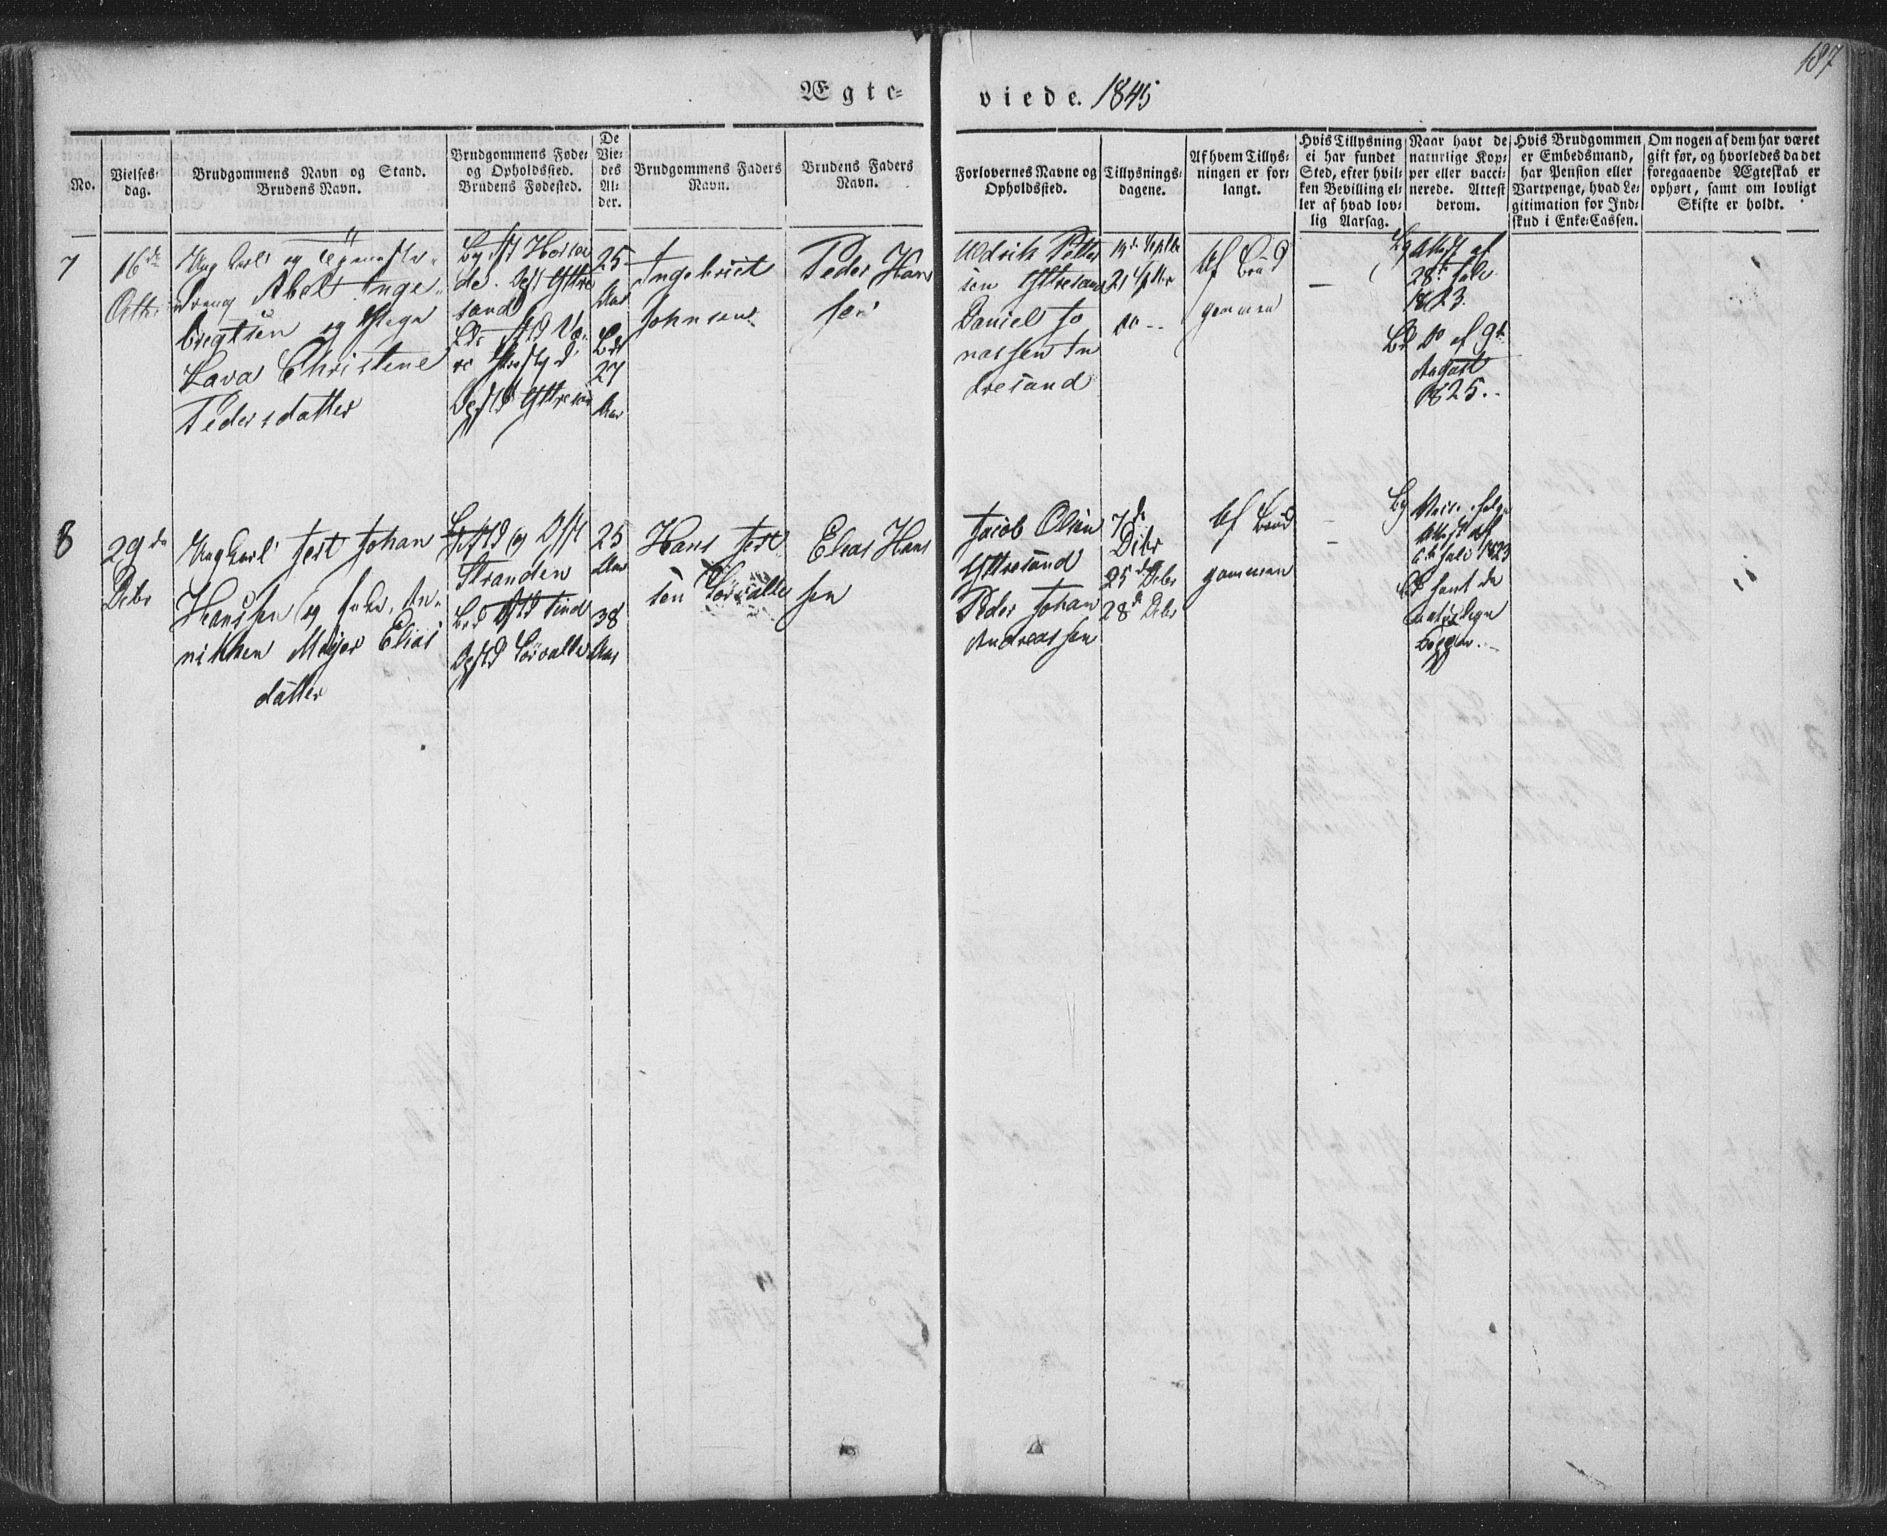 187
Ægte-
viede. 1845
No.
Vielses-
dag.
Brudgommens Navn og Stand.
Brudens Navn.
Brudgommens Føde-
og Opholdssted.
Brudens Fødested.
De
Vie-
des
Al-
der.
Brudgommens Faders
Navn.
Brudens Faders
Navn.
Forlovernes Navne og
Opholdssted.
Tillysnings-
dagene.
Af hvem Tillys-
ningen er for-
langt.
Hvis Tillysning
ei har fundet
Sted, efter hvil-
ken Bevilling el-
ler af hvad lov-
lig Aarsag.
Naar havt de
naturlige Kop-
per eller vacci-
nerede. Attest
derom.
Hvis Brudgommen
er Embedsmand,
har Pension eller
Vartpenge, hvad Le-
gitimation for Ind-
skud i Enke-Cassen.
Om nogen af dem har været
gift før, og hvorledes da det
foregaaende Ægteskab er
ophørt, samt om lovligt
Skifte er holdt.
7
16de
Ungkarl og
Abel Inge
brigtsen og Pige
Lava Christene
Pedersdatter
25
Aar
Bd
27
Aar
Ingebrict
Johnsen
Peder Han
sen
Uldrich Petter
sen Yttresand
Daniel Jo
nassen In
dresand
14de Septbr
21 Septbr
Af Brud
gommen
Attest af
28de Juli
1823.
Bd Do af 9de
August
1825.
8
29de
Debr
Ungkarl Jert Johan
Hanssen og
nikken Meyer Elias
datter
Stranden
Opstd Sørvalle
25
Aar
38
Aar
Hans Jert
sen Sørvalle
Elias Hans
sen
Jacob Olsen
Yttresand
Peder Johan
Andreassen
7de
Debr
25de Debr
28de Debr
Af Brud
gommen
Bg
Attest af
Juli 1823
Bd havt de
naturlige
Kopper.